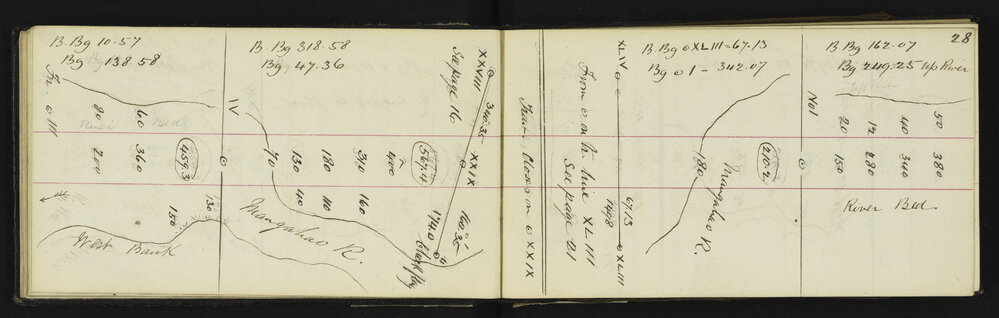 B. Bg 10.57
Bg 138.58
Fr. o III
80
60
River Bed
200
360
459.3
150
130
West Bank
B. Bg 318.58
Bg 47.36
IV
70
130
180
340
400
567.4
40
110
160
Mangahao R.
See page 16
XXVIII
340.35
XXIX
160.35
1740
Black flag
Closes on o XXIX
From o on tr. line XLIII
See page 21
XLIV
6713
1498
XLIII
B. Bg o XLIII - 67.13
Bg o 1 - 342.07
180
Mangahao R.
210.2
28
B Bg 162.07
Bg 249.25 up River
No1
20
12
40
50
150
280
340
380
River Bed